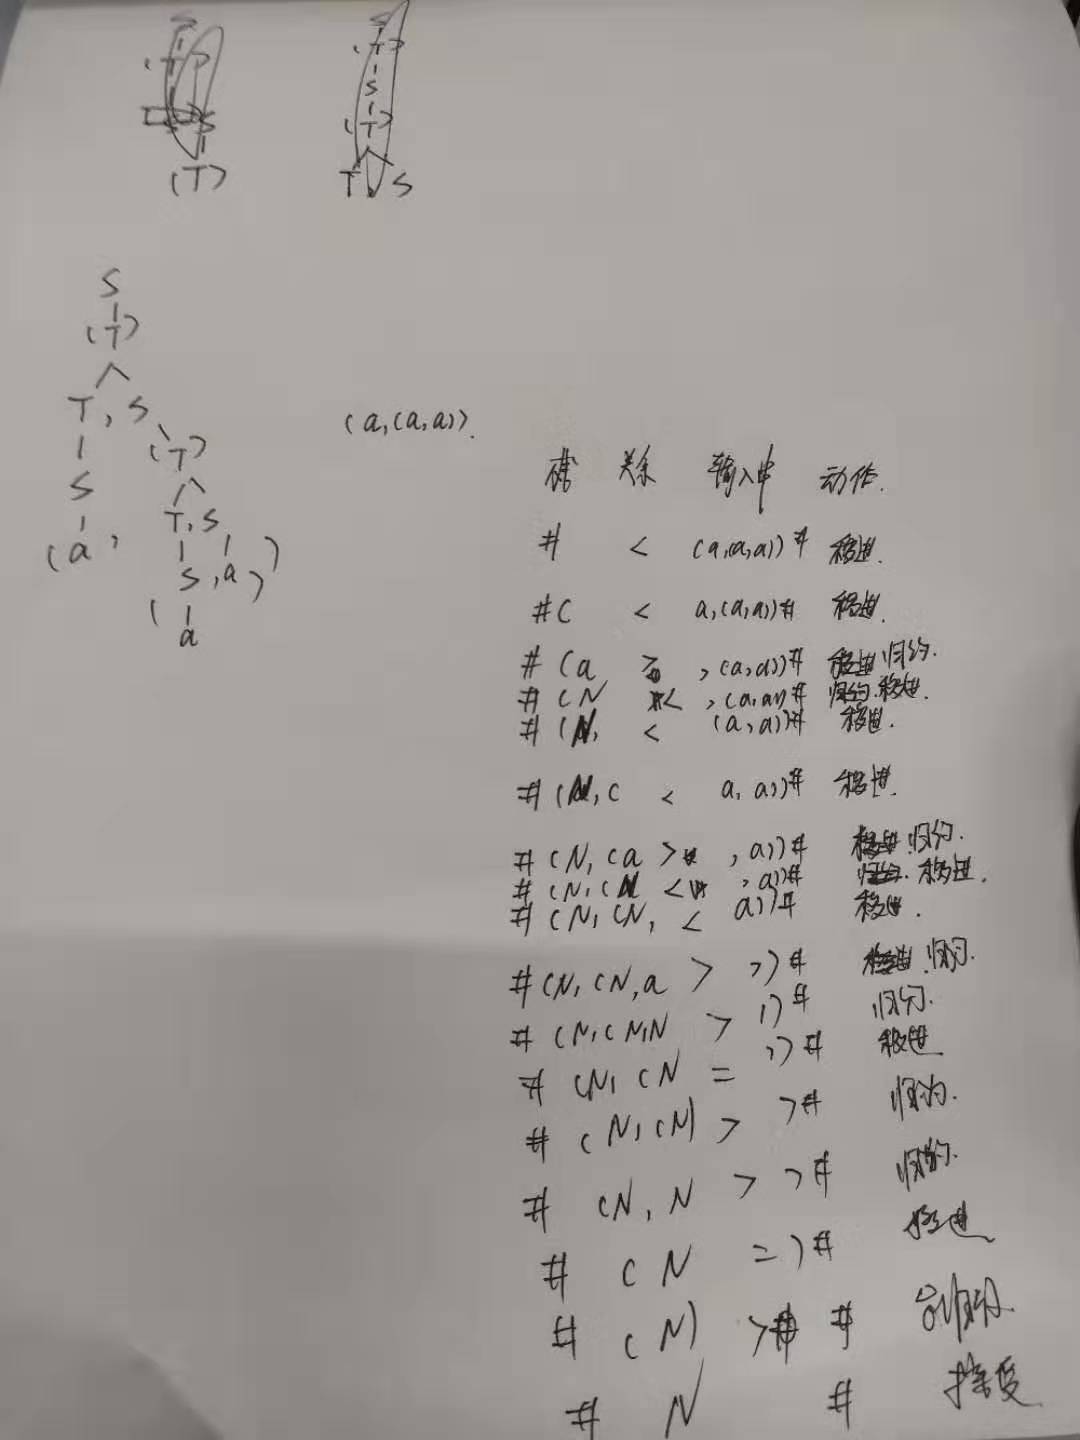 S
(T)
(T)
S
(T)
S
(T)
T, S
S
(T)
T, S
(T)
S
T, S
(a,
S, a))
(
a
(a,(a,a)).
栈 关系 输入串 动作.
# < (a,(a,a))# 移进.
#( < a,(a,a))# 移进.
#(a > ,(a,a))# 归约.
#(N < ,(a,a))# 移进.
#(N, < (a,a))# 移进.
#(N,( < a,a))# 移进.
#(N,(a > ,a))# 归约.
#(N,(N < ,a))# 移进.
#(N,(N, < a))# 移进.
#(N,(N,a > ))# 归约.
#(N,(N,N > ))# 归约.
#(N,(N = ))# 移进
#(N,(N) > )# 归约.
#(N,N > )# 归约.
#(N = )# 移进
#(N) > # 归约
#N # 接受